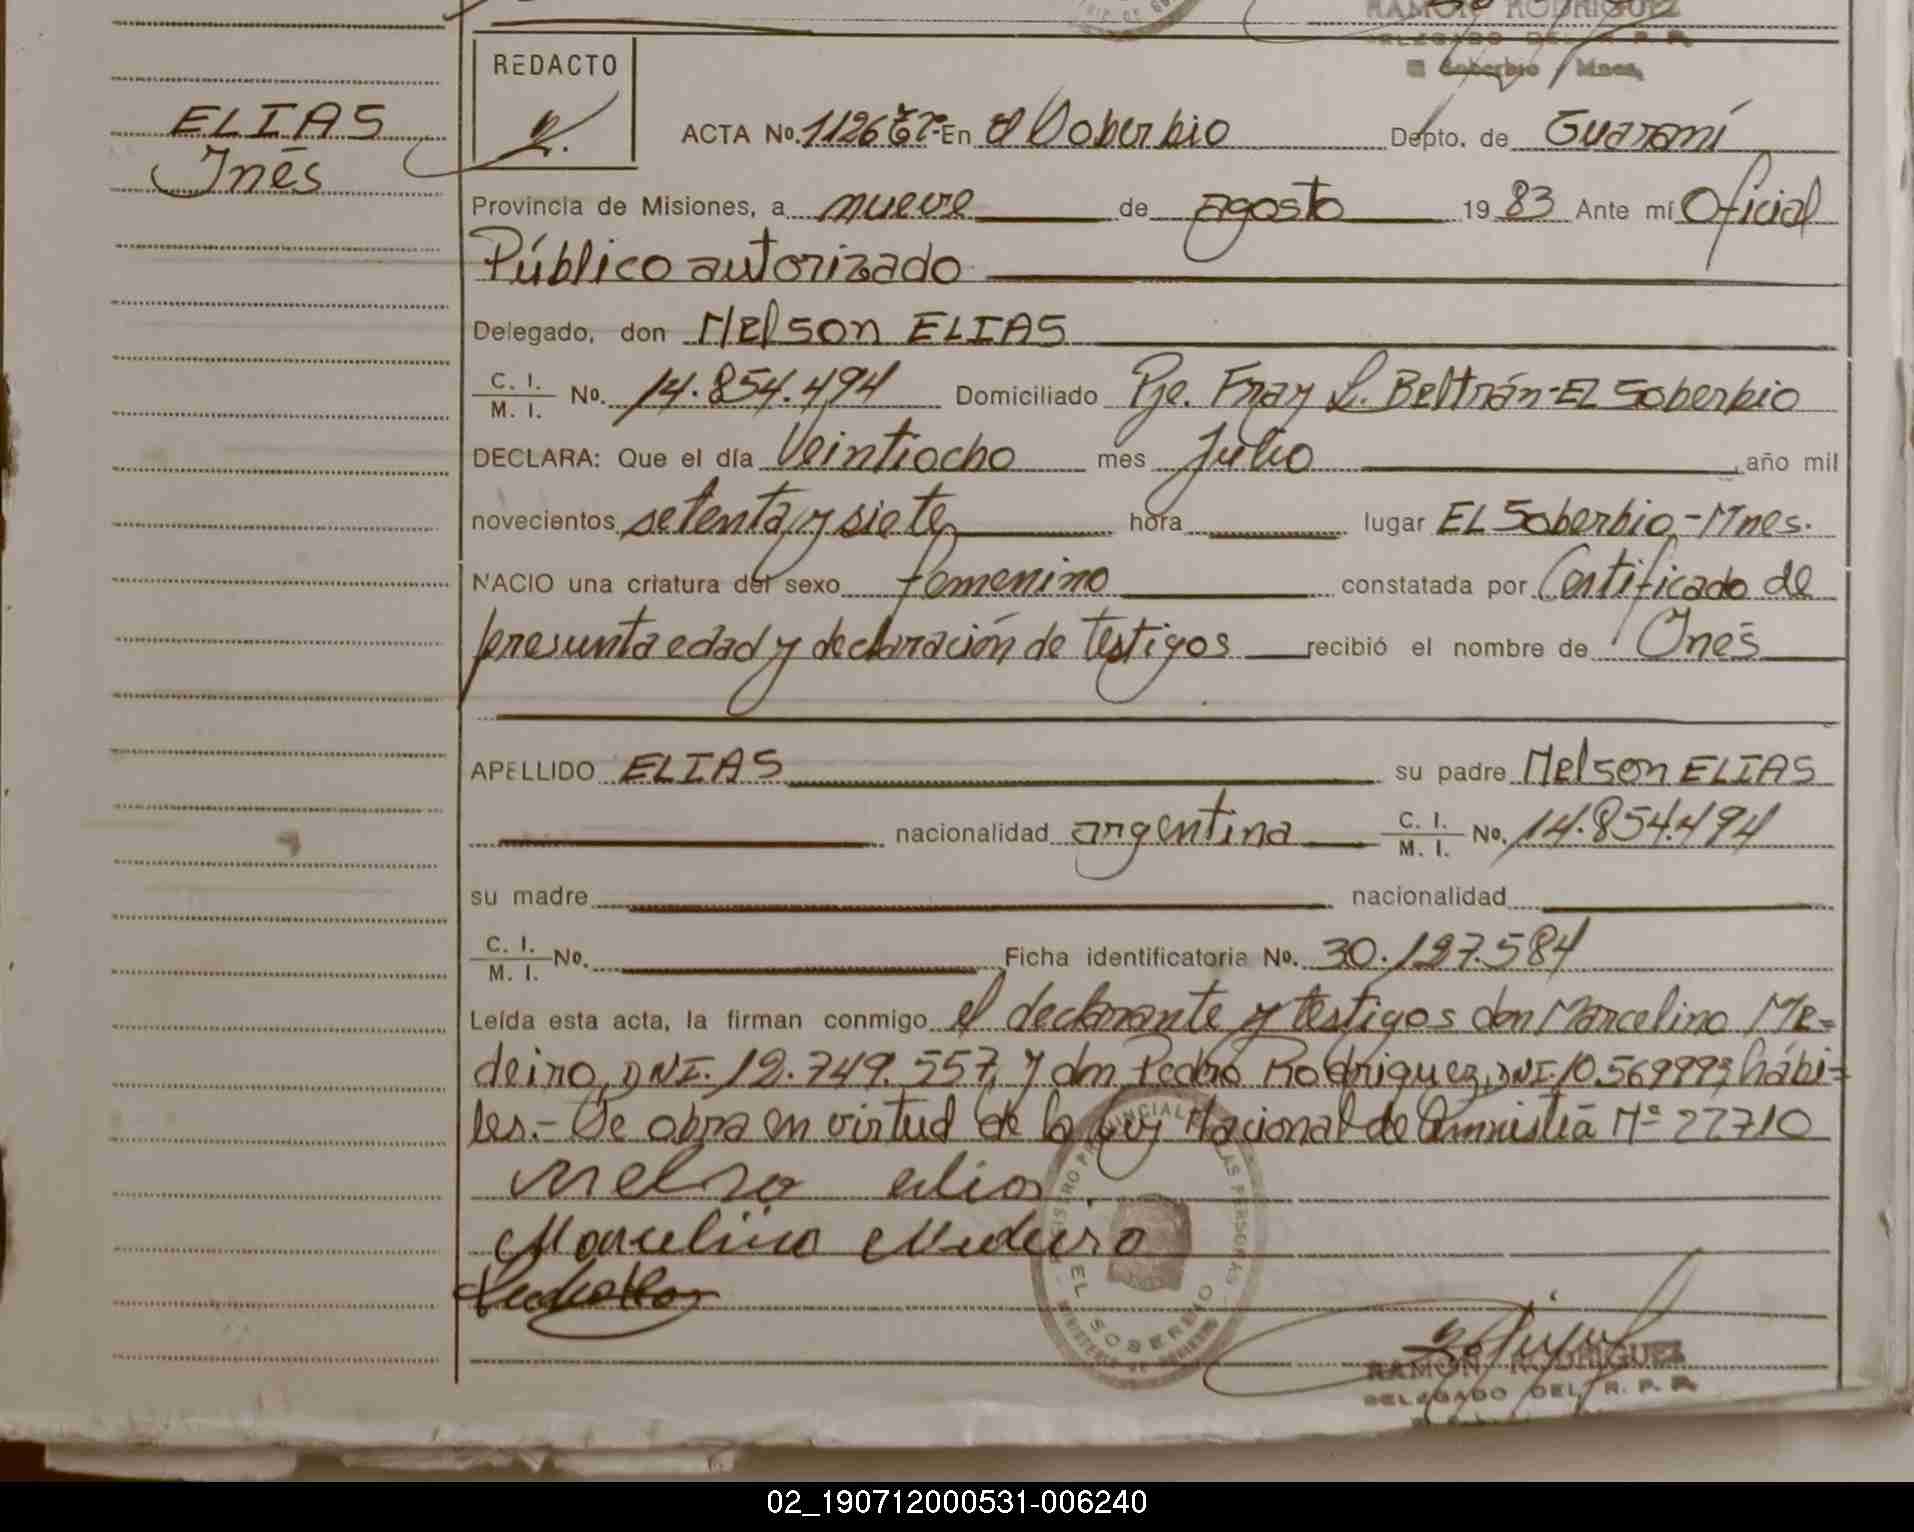 RAMON RODRIGUEZ
DELEGADO DEL R. P. P.
El Soberbio / Mnes.
REDACTO
ELIAS
Inés
ACTA No. 1126 Tº 6º En El Soberbio Depto. de Guaraní
Provincia de Misiones, a nueve de agosto 19 83 Ante mí Oficial
Público autorizado
Delegado, don Nelson ELIAS
C. I.
M. I. No. 14.854.494 Domiciliado Pje. Fray L. Beltrán-EL Soberbio
DECLARA: Que el día Veintiocho mes Julio , año mil
novecientos setenta y siete hora lugar EL Soberbio - Mnes.
NACIO una criatura del sexo femenino constatada por Certificado de
presunta edad y declaración de testigos recibió el nombre de Inés
APELLIDO ELIAS su padre Nelson ELIAS
nacionalidad argentina C. I.
M. I. No. 14.854.494
su madre nacionalidad
C. I.
M. I. No. Ficha identificatoria No. 30.127.584
Leída esta acta, la firman conmigo el declarante y testigos don Marcelino Me-
deiro, DNI. 12.749.557, y don Pedro Rodriguez, DNI 10.569993 hábi-
les.- Se obra en virtud de la Ley Nacional de Amnistía Nº 22710
Nelso elias.
Marcelino Medeiro
REGISTRO PROVINCIAL DE LAS PERSONAS
EL SOBERBIO
MINISTERIO DE GOBIERNO
RAMON RODRIGUEZ
DELEGADO DEL R. P. P.
02_190712000531-006240